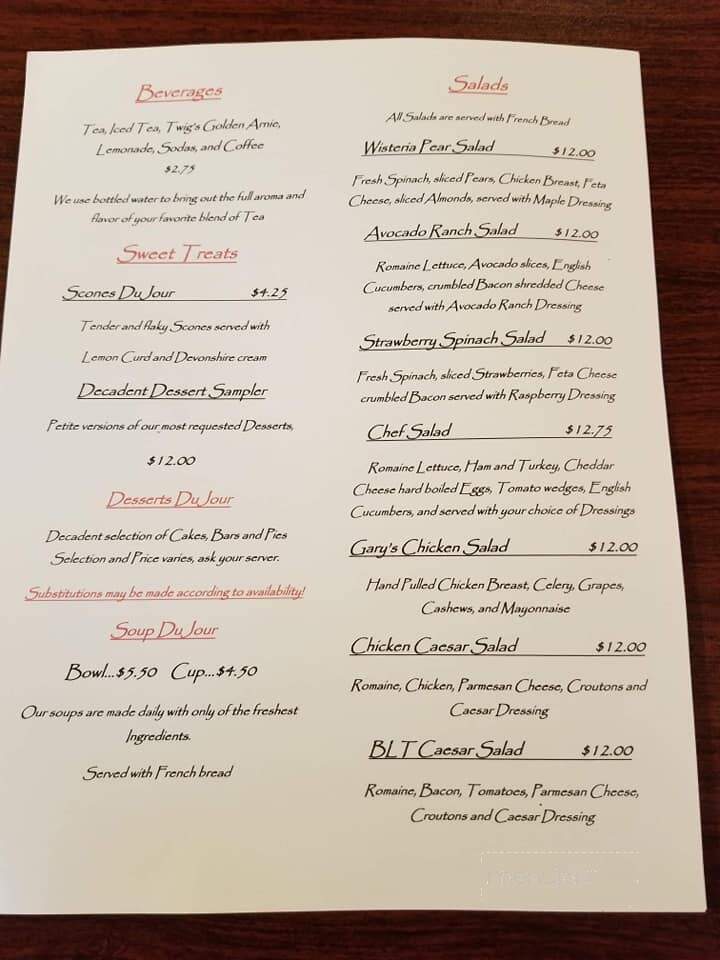 Beverages
Tea, Iced Tea, Twig's Golden Arnie,
Lemonade, Sodas, and Coffee
$2.75
We use bottled water to bring out the full aroma and
flavor of your favorite blend of Tea
Sweet Treats
Scones Du Jour $4.25
Tender and flaky Scones served with
Lemon Curd and Devonshire cream
Decadent Dessert Sampler
Petite versions of our most requested Desserts,
$12.00
Desserts Du Jour
Decadent selection of Cakes, Bars and Pies
Selection and Price varies, ask your server.
Substitutions may be made according to availability!
Soup Du Jour
Bowl...$5.50 Cup...$4.50
Our soups are made daily with only of the freshest
Ingredients.
Served with French bread
Salads
All Salads are served with French Bread
Wisteria Pear Salad $12.00
Fresh Spinach, sliced Pears, Chicken Breast, Feta
Cheese, sliced Almonds, served with Maple Dressing
Avocado Ranch Salad $12.00
Romaine Lettuce, Avocado slices, English
Cucumbers, crumbled Bacon shredded Cheese
served with Avocado Ranch Dressing
Strawberry Spinach Salad $12.00
Fresh Spinach, sliced Strawberries, Feta Cheese
crumbled Bacon served with Raspberry Dressing
Chef Salad $12.75
Romaine Lettuce, Ham and Turkey, Cheddar
Cheese hard boiled Eggs, Tomato wedges, English
Cucumbers, and served with your choice of Dressings
Gary's Chicken Salad $12.00
Hand Pulled Chicken Breast, Celery, Grapes,
Cashews, and Mayonnaise
Chicken Caesar Salad $12.00
Romaine, Chicken, Parmesan Cheese, Croutons and
Caesar Dressing
BLT Caesar Salad $12.00
Romaine, Bacon, Tomatoes, Parmesan Cheese,
Croutons and Caesar Dressing